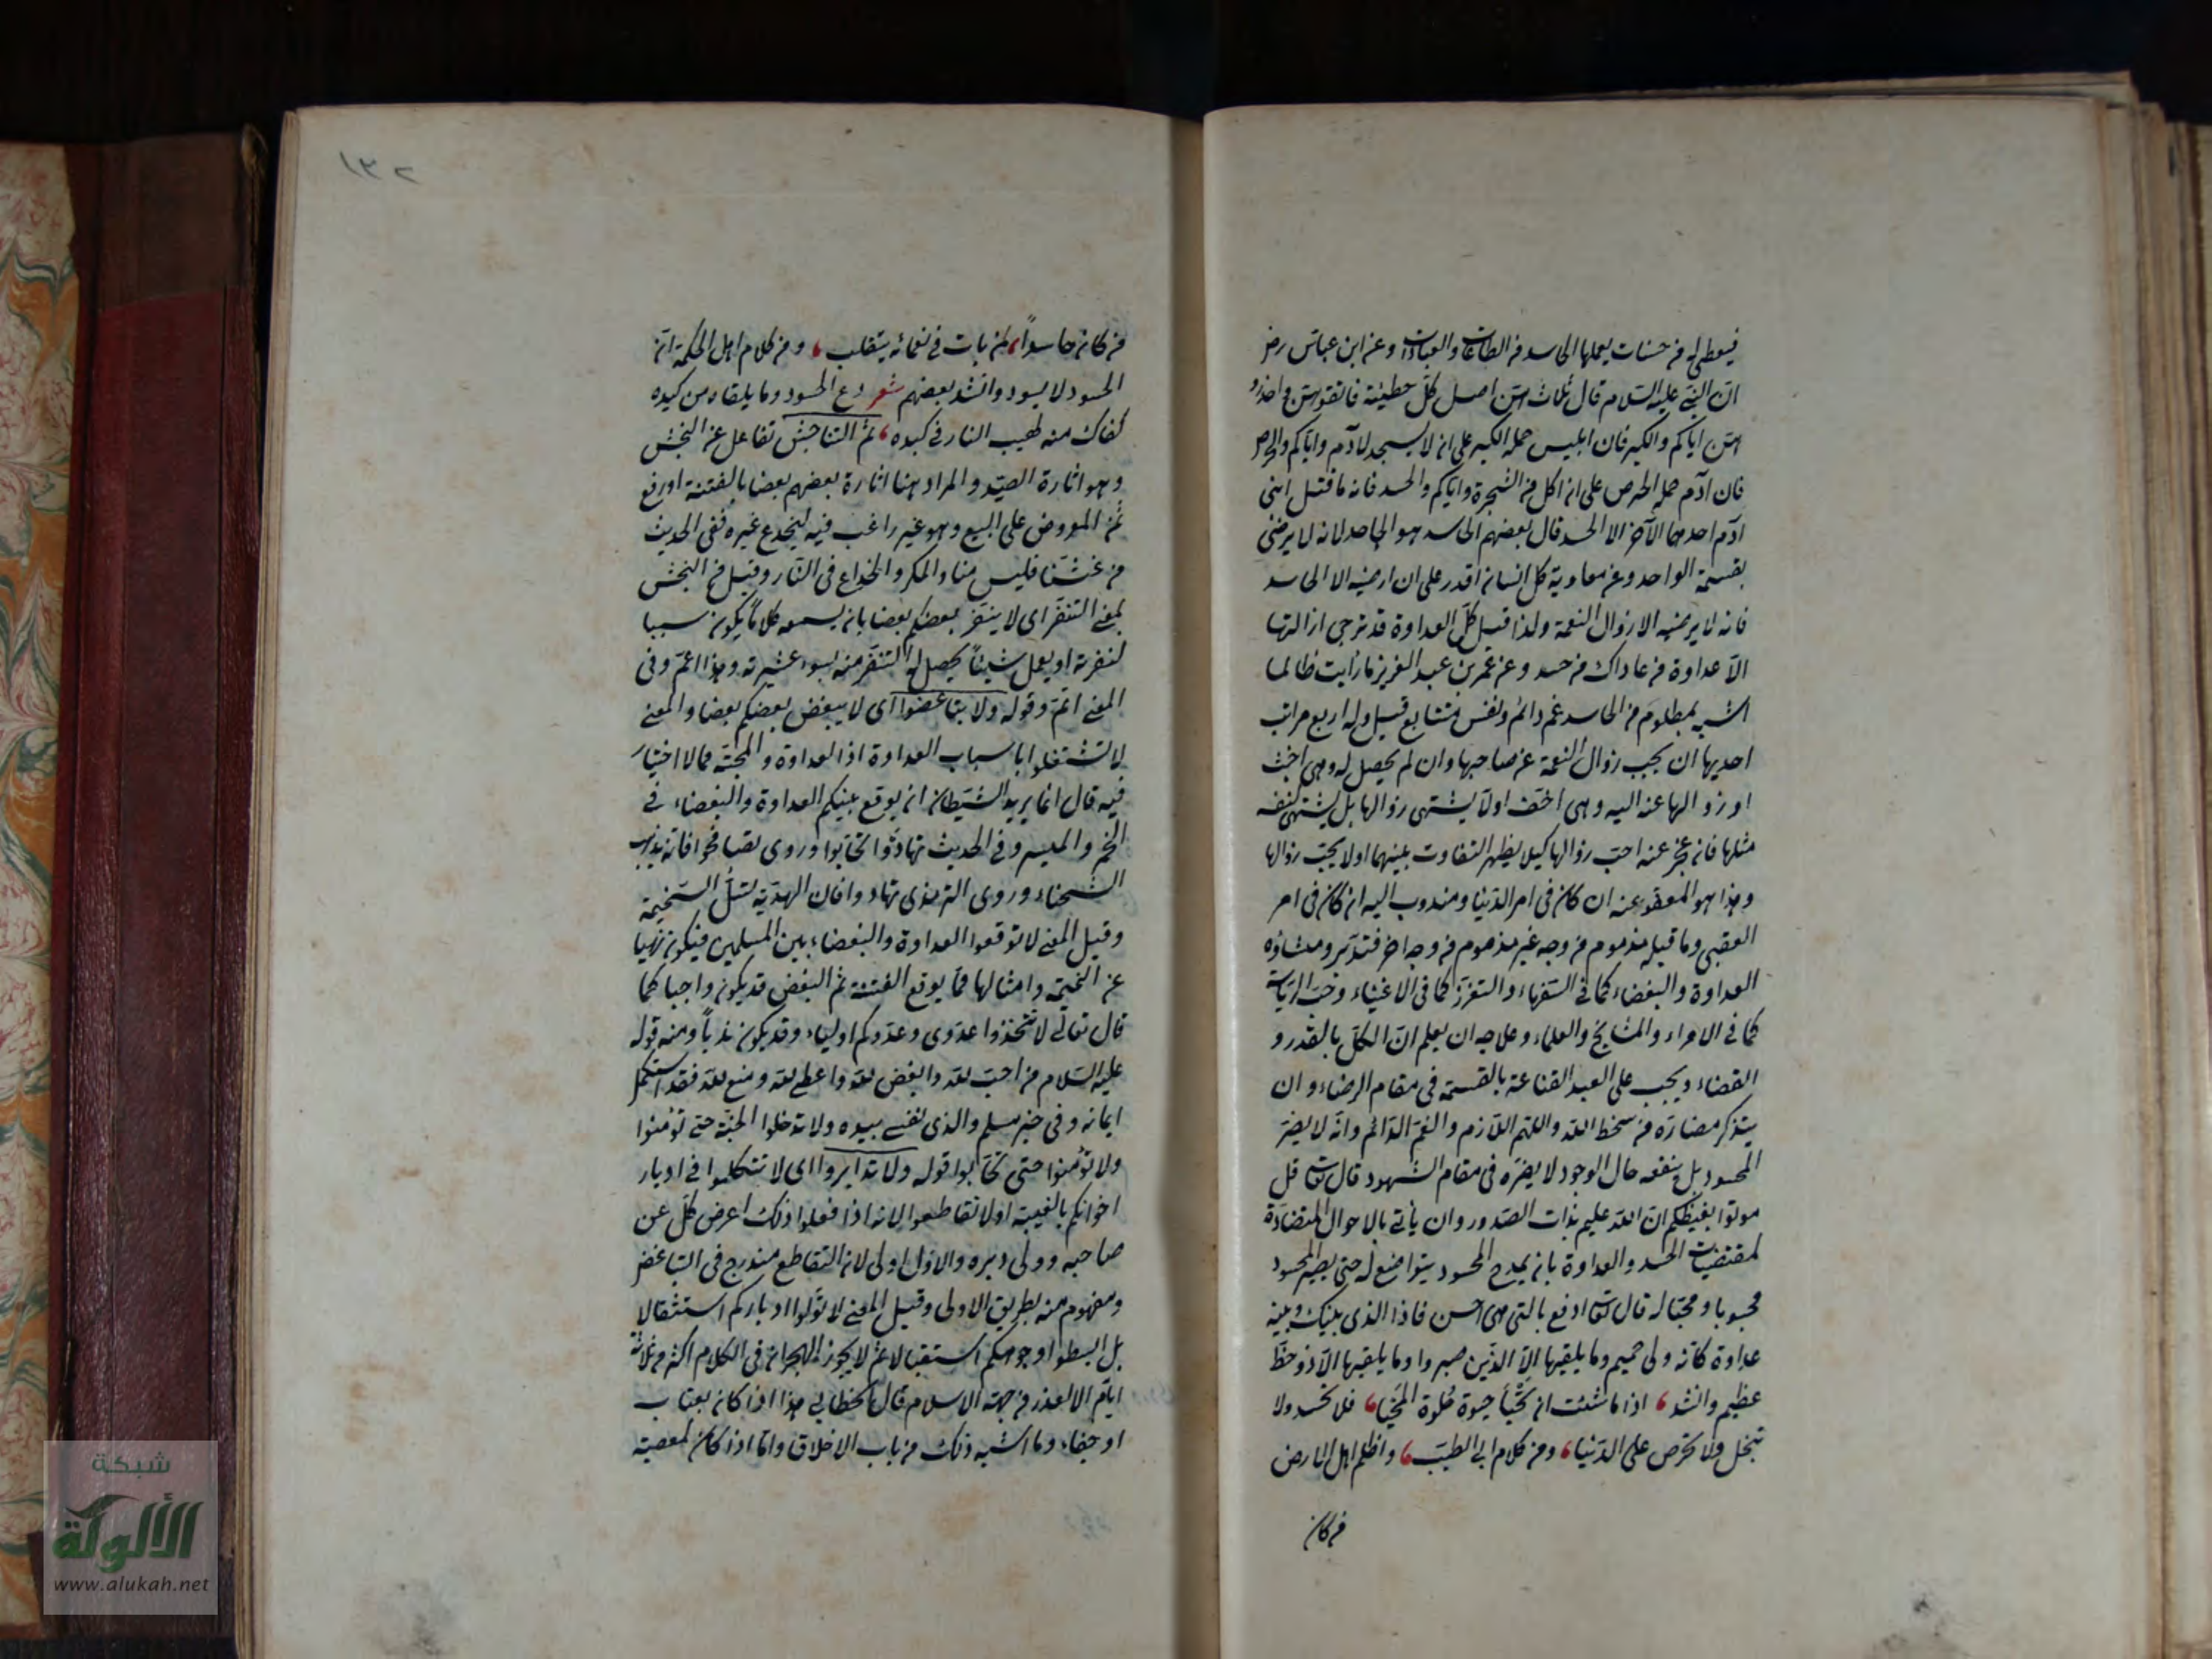 فيعطى له من حسنات يعملها الحاسد من الطاعات والعبادات وعن ابن عباس رض
ان النبي عليه السلام قال ثلاث هن اصل كل خطيئة فاتقوهن واحذرو
هن اياكم والكبر فان ابليس حمله الكبر على ان لا يسجد لآدم واياكم والحرص
فان آدم حمله الحرص على ان اكل من الشجرة واياكم والحسد فانه ما قتل ابنى
آدم احدهما الآخر الا الحسد قال بعضهم الحاسد هو الجاحد لانه لا يرضى
بقسمة الواحد وعن معاوية كل انسان اقدر على ان ارضيه الا الحاسد
فانه لا يرضيه الا زوال النعمة ولذا قيل كل العداوة قد ترجى ازالتها
الا عداوة من عاداك من حسد وعن عمر بن عبد العزيز ما رأيت ظالما
اشبه بمظلوم من الحاسد غم دائم ونفس متتابع قيل وله اربع مراتب
احديها ان يحب زوال النعمة عن صاحبها وان لم يحصل له وهى اخبث
او زوالها عنه اليه وهى اخف اولا يشتهى زوالها بل يشتهى لنفسه
مثلها فان عجز عنه احب زوالها كيلا يظهر التفاوت بينهما اولا يحب زوالها
وهذا هو المعفو عنه ان كان فى امر الدنيا ومندوب اليه ان كان فى امر
العقبى وما قبله مذموم من وجه غير مذموم من وجه اخر فتدبر ومنشاؤه
العداوة والبغضاء كما فى السفهاء والتعزز كما فى الاغنياء وحب الرياسة
كما فى الامراء والمشايخ والعلماء وعلاجه ان يعلم ان الكل بالقدر و
القضاء ويجب على العبد القناعة بالقسمة فى مقام الرضاء وان
يتذكر مضاره من سخط الله والهم اللازم والغم الدائم وانه لا يضر
المحسود بل ينفعه حال الوجود لا يضره فى مقام الشهود قال تعالى قل
موتوا بغيظكم ان الله عليم بذات الصدور وان يأتى بالاحوال المتضادة
لمقتضيات الحسد والعداوة بان يمدح المحسود يتواضع له حتى يصير المحسود
محبوبا ومحبا له قال تعالى ادفع بالتى هى احسن فاذا الذى بينك وبينه
عداوة كانه ولى حميم وما يلقيها الا الذين صبروا وما يلقيها الا ذو حظ
عظيم وانشد ، اذا ما شئت ان تحيا حيوة حلوة المحيا ، فلا تحسد ولا
تبخل ولا تحرص على الدنيا ، ومن كلام ابى الطيب ، واظلم اهل الارض
من كان
١٣٢
من كان حاسداً ، لمن بات فى نعمائه يتقلب ، ومن كلام اهل الحكمة ان
الحسود لا يسود وانشد بعضهم شعر دع الحسود وما يلقاه من كيده
كفاك منه لهيب النار فى كبده ، ثم التناجش تفاعل عن النجش
وهو اثارة الصيد والمراد هنا اثارة بعضهم بعضا بالفتنة او رفع
ثمن المعروض على البيع وهو غير راغب فيه ليخدع غيره ففى الحديث
من غشنا فليس منا والمكر والخداع فى النار وقيل من النجش
بمعنى التنفر اى لا ينفر بعضكم بعضا بان يسمعه كلاما يكون سببا
لنفرته او يعمل شيئاً يحصل له التنفر منه بسوء عشيرته وهذا اعم وفى
المعنى اتم وقوله ولا تباغضوا اى لا يبغض بعضكم بعضا والمعنى
لا تشتغلوا باسباب العداوة اذ العداوة والمحبة مما لا اختيار
فيه قال انما يريد الشيطان ان يوقع بينكم العداوة والبغضاء فى
الخمر والميسر وفى الحديث تهادوا تحابوا وروى تصافحوا فانه يذهب
الشحناء وروى الترمذى تهادوا فان الهدية تسل السخيمة
وقيل المعنى لا توقعوا العداوة والبغضاء بين المسلمين فيكون نهيا
عن النميمة وامثالها مما يوقع الفتنة ثم البغض قد يكون واجبا كما
قال تعالى لا تتخذوا عدوى وعدوكم اولياء وقد يكون ندباً ومنه قوله
عليه السلام من احب لله وابغض لله واعطى لله ومنع لله فقد استكمل
ايمانه وفى خبر مسلم والذى نفسى بيده ولا تدخلوا الجنة حتى تؤمنوا
ولا تؤمنوا حتى تحابوا قوله ولا تدابروا اى لا تتكلموا فى ادبار
اخوانكم بالغيبة اولا تقاطعوا لانه اذا فعلوا ذلك اعرض كل عن
صاحبه وولى دبره والاول اولى لان التقاطع مندرج فى التباغض
ومفهوم منه بطريق الاولى وقيل المعنى لا تولوا ادباركم استثقالا
بل ابسطوا وجوهكم استقبالا ثم لا يجوز الهجران فى الكلام اكثر من ثلاثة
ايام الا لعذر من جهة الاسلام قال الخطابى هذا اذا كان بعتاب
او جفاء وما اشبه ذلك من باب الاخلاق واما اذا كان لمعصية
شبكة
الألوكة
www.alukah.net